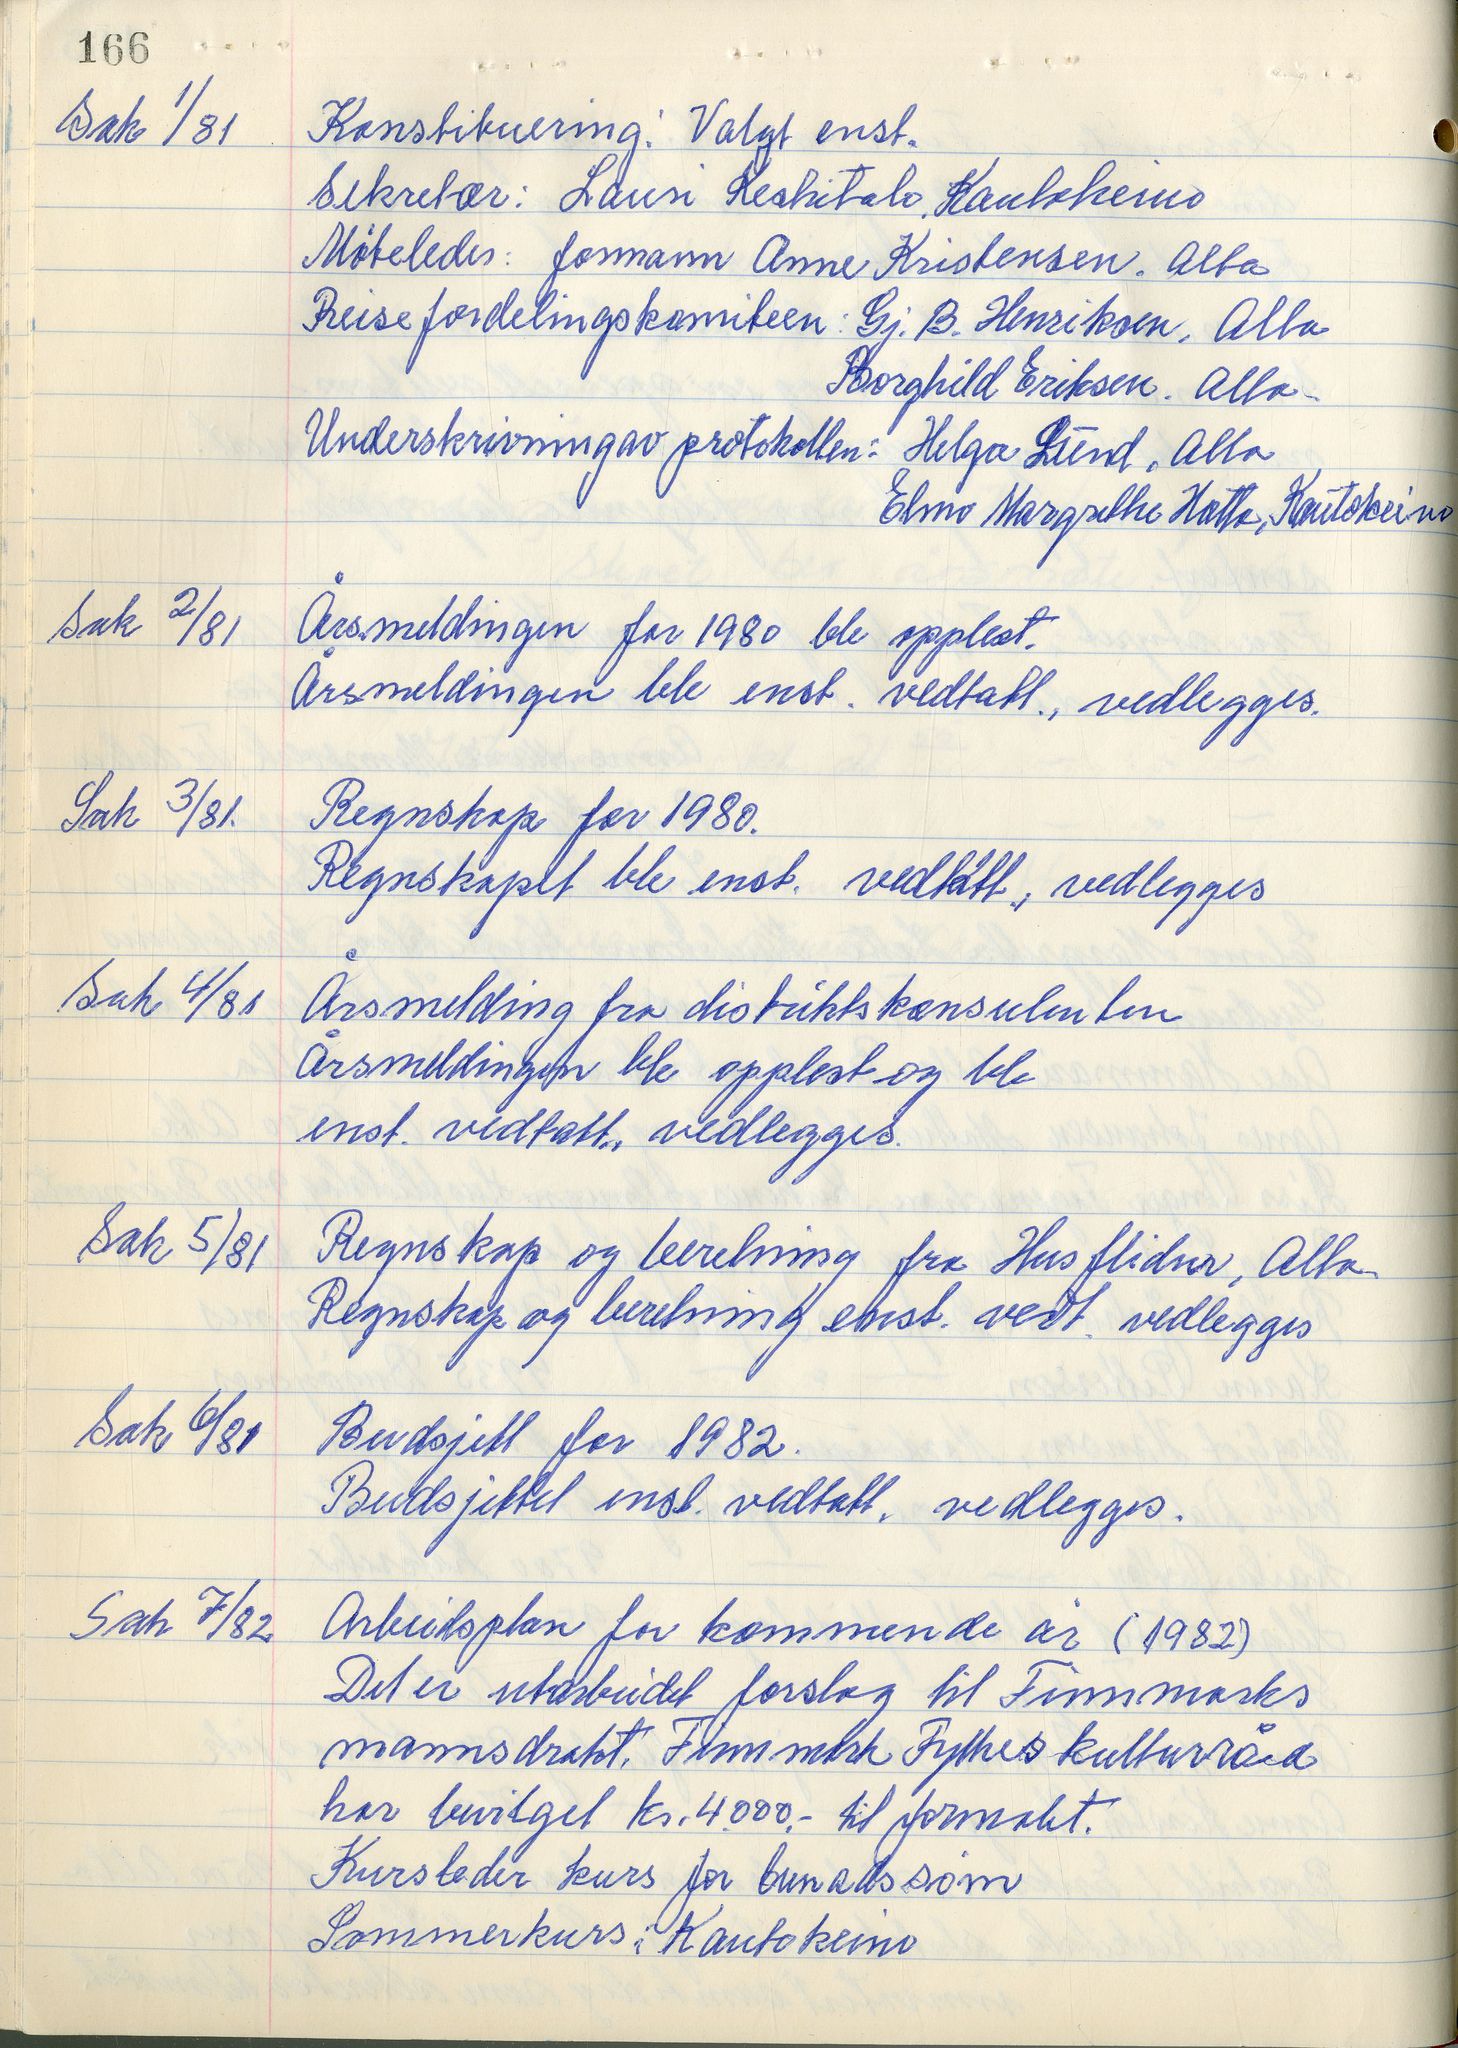 166
Sak 1/81 Konstituering: Valgt enst.
Sekretær: Lausi Keskitalo, Kautokeino
Møteleder: formann Anne Kristensen. Alta
Reisefordelingskomiteen: Gj. B. Henriksen, Alta
Borghild Eriksen. Alta
Underskrivning av protokollen: Helga Lund, Alta
Elmo Margrethe Hatta, Kautokeino
Sak 2/81 Årsmeldingen for 1980 ble opplest.
Årsmeldingen ble enst. vedtatt., vedlegges.
Sak 3/81. Regnskap for 1980.
Regnskapet ble enst. vedtatt., vedlegges
Sak 4/81 Årsmelding fra distriktskonsulenten
Årsmeldingen ble opplest og ble
enst. vedtatt., vedlegges.
Sak 5/81 Regnskap og beretning fra Husfliden, Alta
Regnskap og beretning enst. vedt. vedlegges
Sak 6/81 Budsjett for 1982.
Budsjettet enst. vedtatt, vedlegges.
Sak 7/82 Arbeidsplan for kommende år (1982)
Det er utarbeidet forslag til Finnmarks
mannsdrakt. Finnmark Fylkes kulturråd
har bevilget kr. 4.000,- til formålet.
Kursleder kurs for bunadssøm
Sommerkurs i Kautokeino